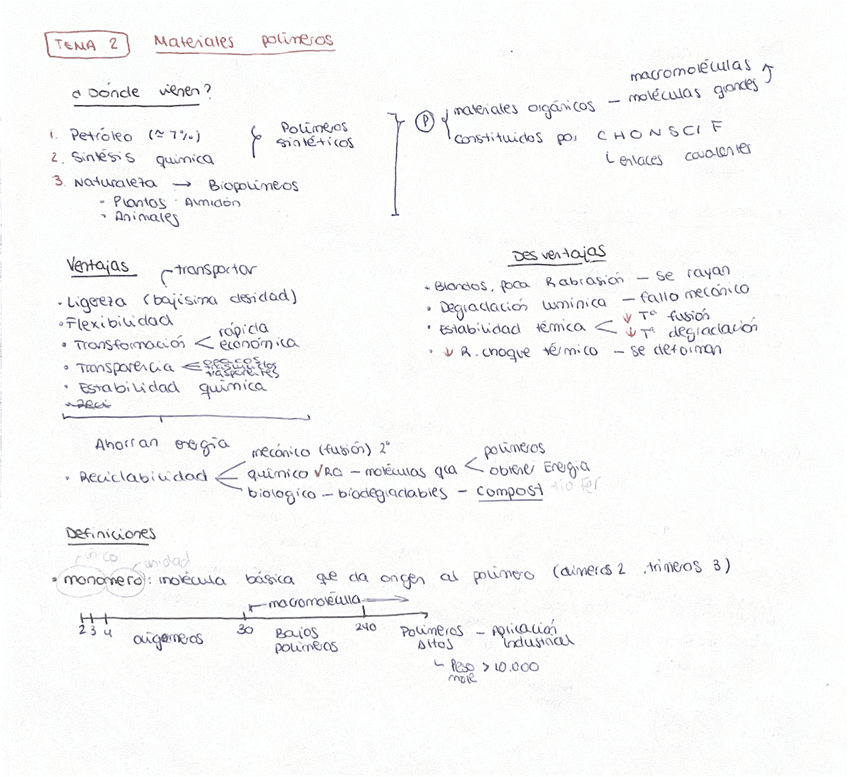 TEMA 2 Materiales polímeros
¿Dónde vienen?
1. Petróleo (≈ 7%)
2. Síntesis química
Polímeros
sintéticos
3. Naturaleza → Biopolímeros
- Plantas: Almidón
- Animales
macromoléculas
P materiales orgánicos – moléculas grandes
constituidos por C H O N S Cl F
enlaces covalentes
Ventajas
transportar
• Ligereza (bajísima desidad)
• Flexibilidad
• Transformación < rápida
económica
• Transparencia < opacos
trasparentes
• Estabilidad química
• Reci
Ahorran energía
• Reciclabilidad
mecánico (fusión) 2º
químico √RQ – moléculas < polímeros
obtiene Energía
biologico – biodegradables – compost
Desventajas
• Blandos, poca R abrasión – se rayan
• Degradación lumínica – fallo mecánico
• Estabilidad térmica < ↓ Tº fusión
↓ Tº degradación
• ↓ R. choque térmico – se deforman
Definiciones
único
unidad
• monómero: molécula básica que da origen al polímero (dímeros 2, trímeros 3)
macromolécula
2 3 4 oligomeros 30 Bajos
polímeros
240 Polímeros
Altos
– Aplicación
Industrial
Peso > 10.000
molec